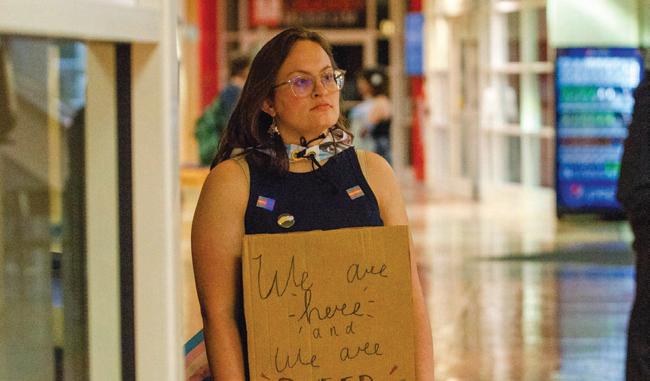 We are
- here -
and
We are
QUEER